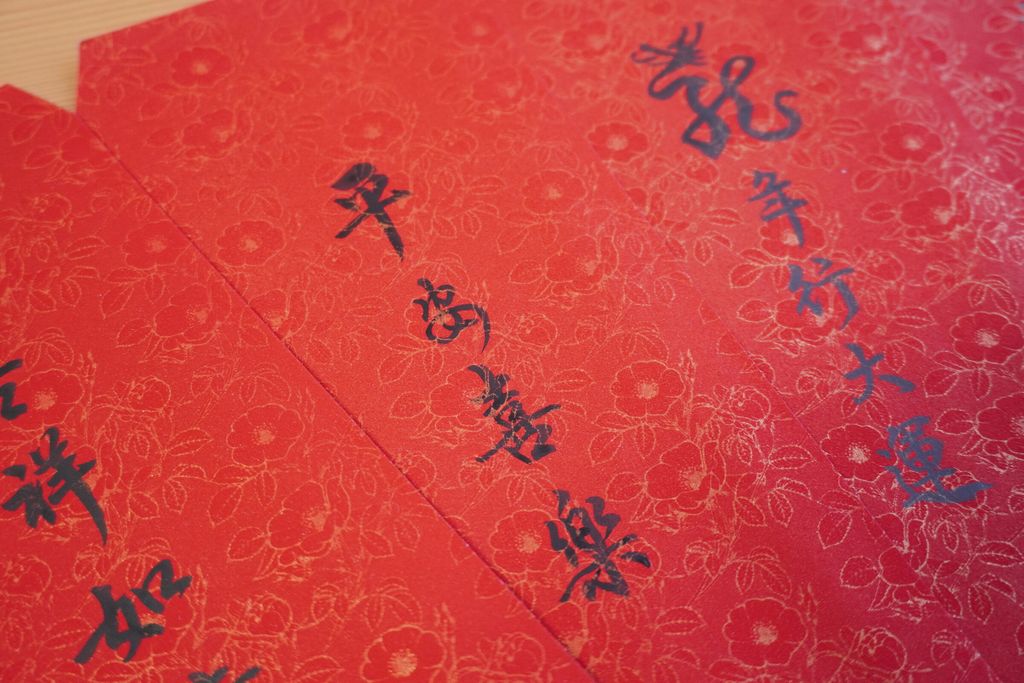 龍年行大運
平安喜樂
祥如